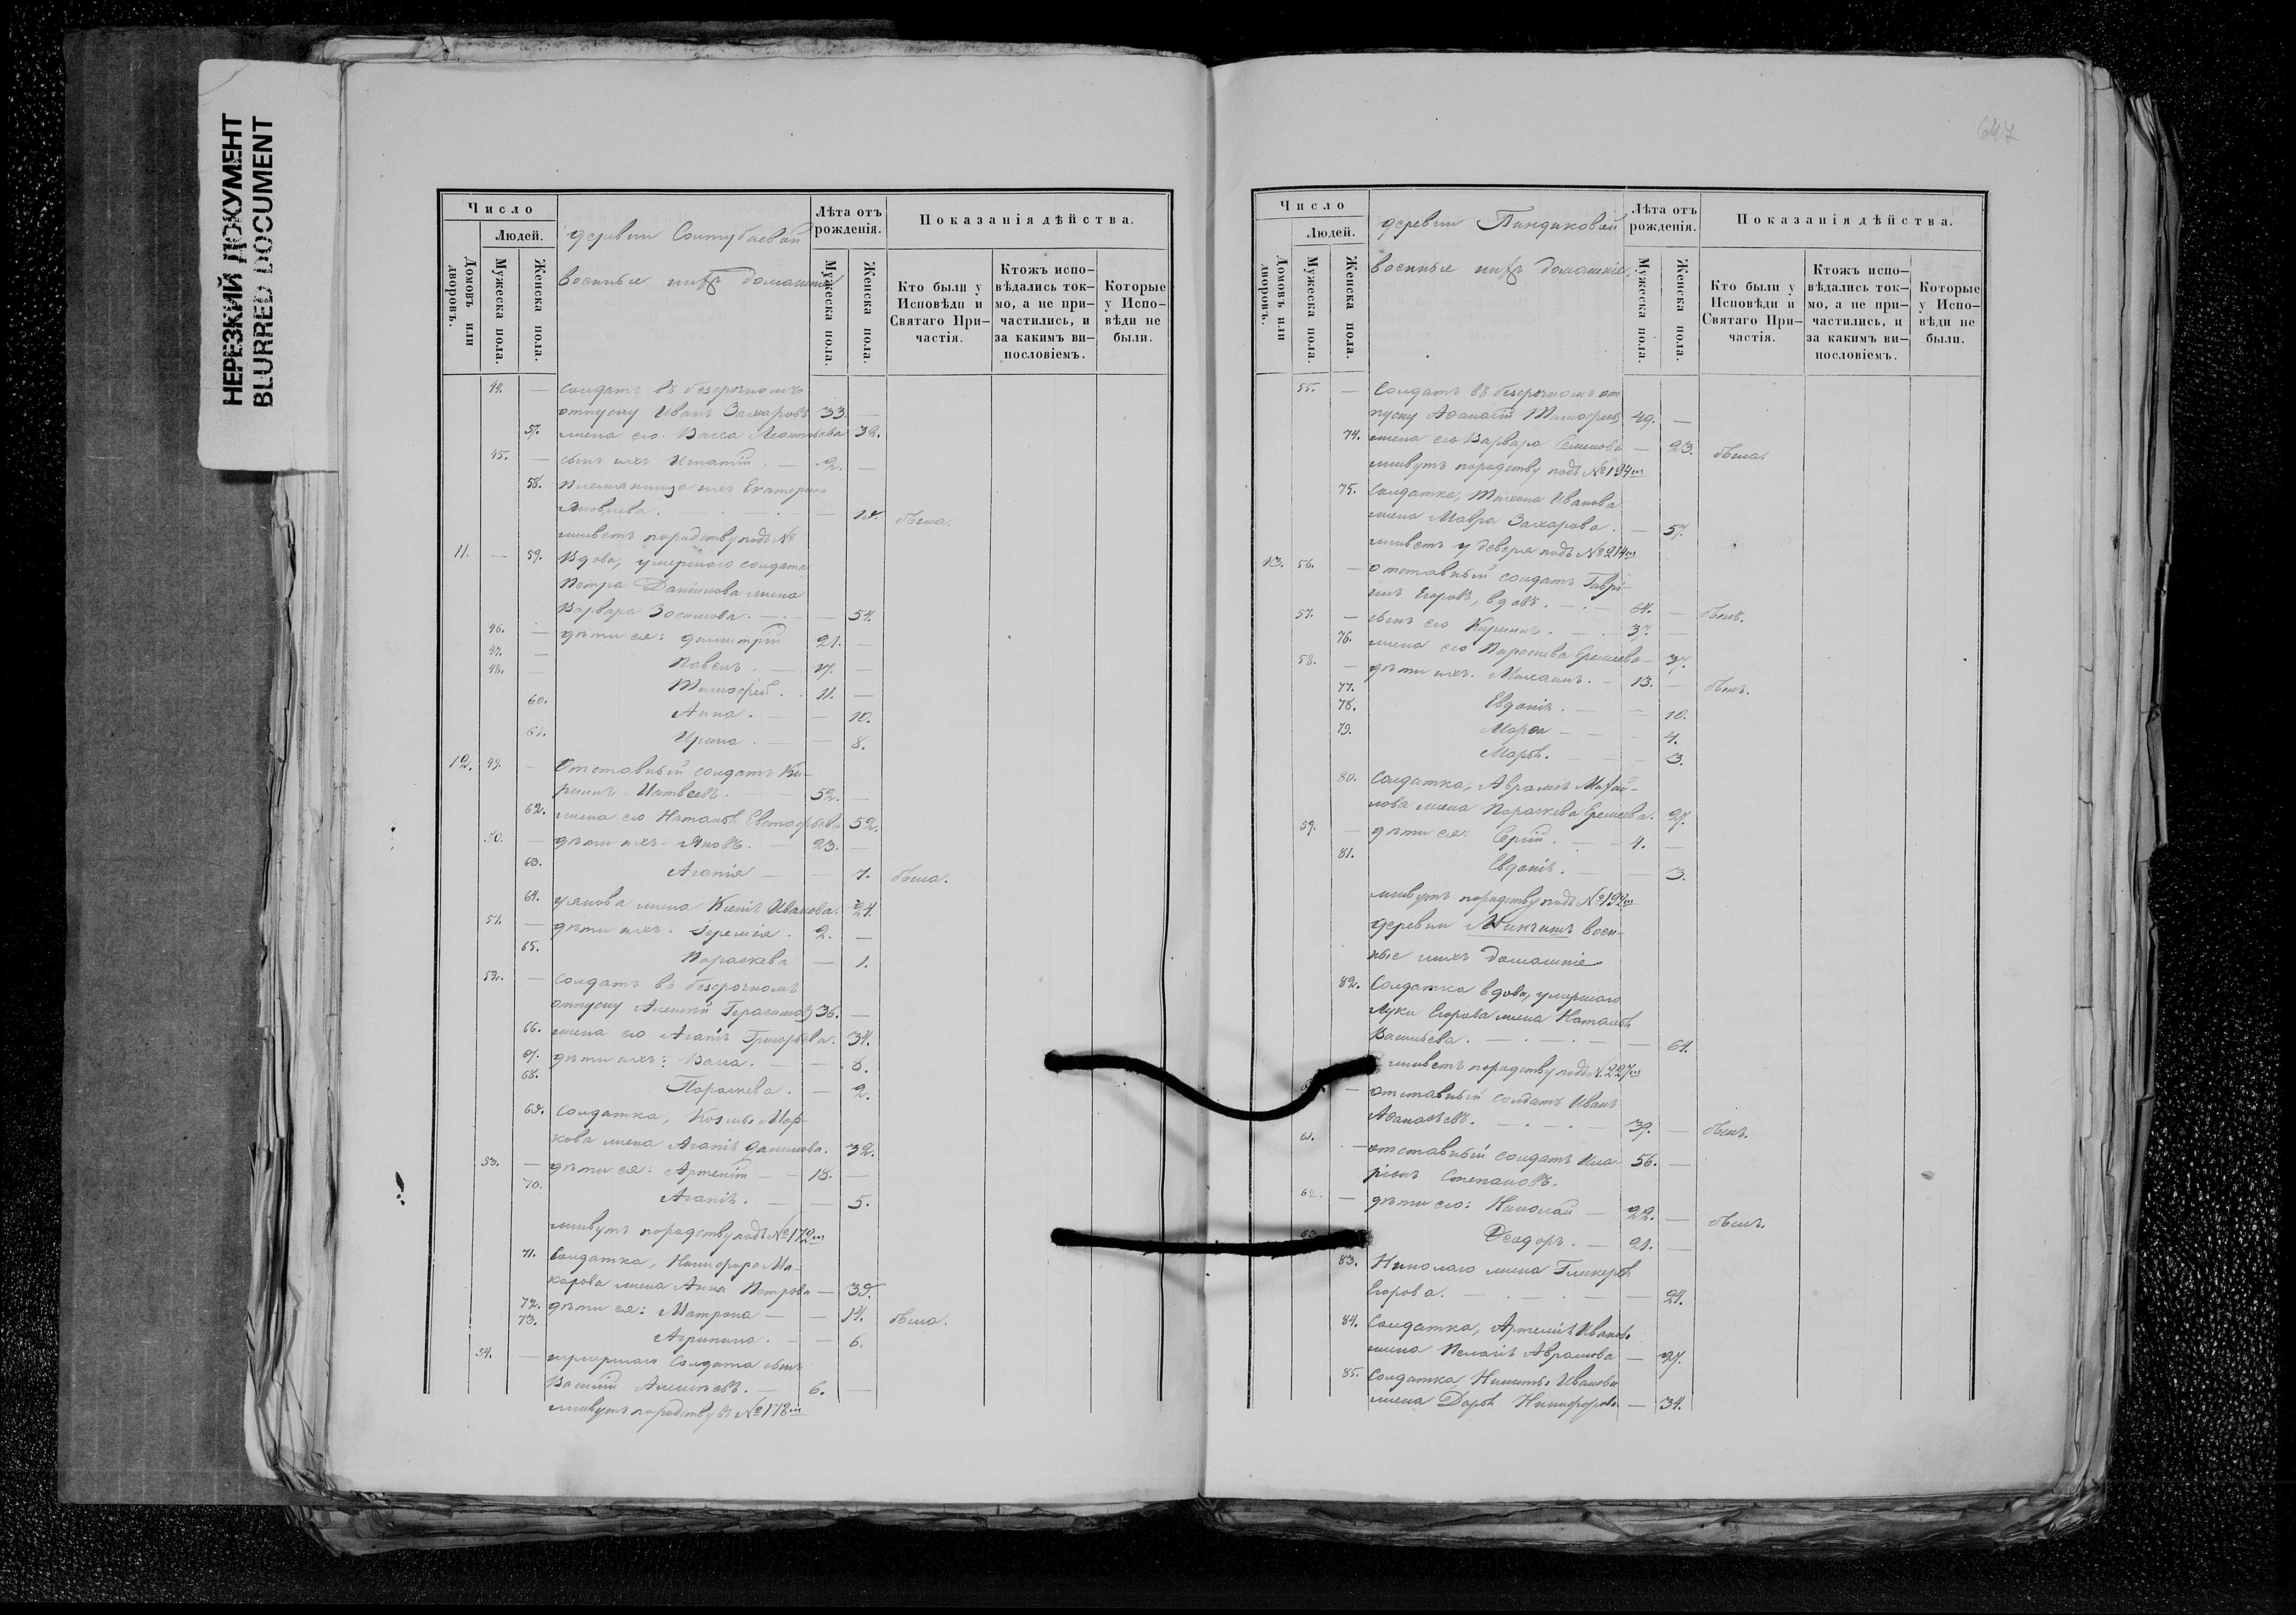 НЕРЕЗКИЙ ДОКУМЕНТ
BLURRED DOCUMENT
Число
Людей.
Домовъ или дворовъ.
Мужеска пола.
Женска пола.
деревни
военные ихъ домашніе
Лѣта отъ рожденія.
Мужеска пола.
Женска пола.
Показанія дѣйства.
Кто были у Исповѣди и Святаго Причастія.
Ктожъ исповѣдались токмо, а не причастились, и за какимъ винословіемъ.
Которые у Исповѣди не были.
44. — Солдатъ въ безсрочномъ
отпуску Иванъ Захаровъ 33. —
57. жена его Васса Леонтьева 32.
45. — сынъ ихъ Игнатій. — 2. —
58. Племянница ихъ Екатерина
Яковлева. — 19. была.
живетъ породству подъ №
11. — 59. Вдова, умершаго солдата
Петра Данилова жена
Варвара Зосимова. — — 54.
46. — дѣти ея: Димитрій 21. —
47. — Павелъ. — 17. —
48. — Тимофей. . 11. —
60. Анна. — — 10.
61. Ирина. — — 8.
12. 49. — Отставный солдатъ Ки-
риллъ Матвѣевъ. — 52. —
62. жена его Наталья Евстафьева 52.
50. — дѣти ихъ: Яковъ. — 23. —
63. Агапія — — 7. была.
64. Якова жена Ксенія Иванова. 24.
51. — дѣти ихъ: Іеремія. 2. —
65. Параскева — 1.
52. — Солдатъ въ безсрочномъ
отпуску Алексѣй Герасимовъ 36. —
66. жена его Агапія Григорьева. 34.
67. дѣти ихъ: Васса. — — 6.
68. Параскева. — 2.
69. Солдатка, Козьмы Мар-
кова жена Агапія Данилова. 32.
53. — дѣти ея: Артемій — 18. —
70. Агапія. — — 5.
живутъ породству подъ №172м
71. Солдатка, Никифора Ма-
карова жена Анна Петрова — 39.
72. дѣти ея: Матрона — — 14. была.
73. Агрипина. — — 6.
54. — умершаго Солдата сынъ
Василій Алексѣевъ. — 6. —
живутъ породству въ №178м
647
Число
Людей.
Домовъ или дворовъ.
Мужеска пола.
Женска пола.
деревни Пиндиковой
военные ихъ домашніе.
Лѣта отъ рожденія.
Мужеска пола.
Женска пола.
Показанія дѣйства.
Кто были у Исповѣди и Святаго Причастія.
Ктожъ исповѣдались токмо, а не причастились, и за какимъ винословіемъ.
Которые у Исповѣди не были.
55. — Солдатъ въ безсрочномъ от
пуску Аѳанасій Тимофеевъ 49. —
74. жена его Варвара Семенова — 23. была.
живутъ породству подъ №194м
75. Солдатка, Тихона Иванова
жена Мавра Захарова. — 57.
живетъ у деверя подъ №214м
13. 56. — отставный солдатъ Гаврі-
илъ Егоровъ, вдовъ. — 64. — былъ.
57. — сынъ его Кириллъ. — 37. —
76. жена его Параскева Еремеева — 37.
58. — дѣти ихъ: Михаилъ. — 13. — былъ.
77. Евдокія. — — 10.
78. Марѳа — — 4.
79. Марья. — — 3.
80. Солдатка, Авраамія Михай-
лова жена Параскева Еремеева. 27.
59. — дѣти ея: Сергій. — 4. —
81. Евдокія. — — 3.
живутъ породству подъ №192м
деревни воен-
ные ихъ домашніе
82. Солдатка вдова, умершаго
Луки Егорова жена Наталья
Васильева. — — 61.
живетъ породству подъ №227м
— отставный солдатъ Иванъ
Аѳанасьевъ. — 39. — былъ.
61. — отставный солдатъ Ила- 56. —
ріонъ Степановъ.
62. — дѣти его: Николай — 22. — былъ.
63 Ѳеодоръ. — 21. —
83. Николаю жена Гликерья
Егорова. — — 24.
84. Солдатка, Артемія Иванова
жена Пелагія Абрамова — 27.
85. Солдатка Никиты Иванова
жена Дарья Никифорова — 34.